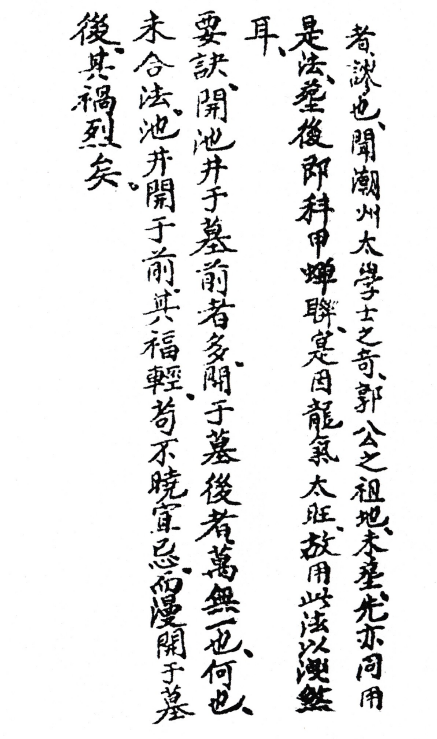 者謬也、聞潮州太學士之奇、郭公之祖地、未塟先、亦同用
是法、塟後即科甲蟬聯、寔因龍氣太旺、故用此法以洩然
耳、
要訣、開池井于墓前者多、開于墓後者、萬無一也、何也、
未合法。池井開于前、其福輕、苟不曉宜忌、而漫開于墓
後、其禍烈矣。